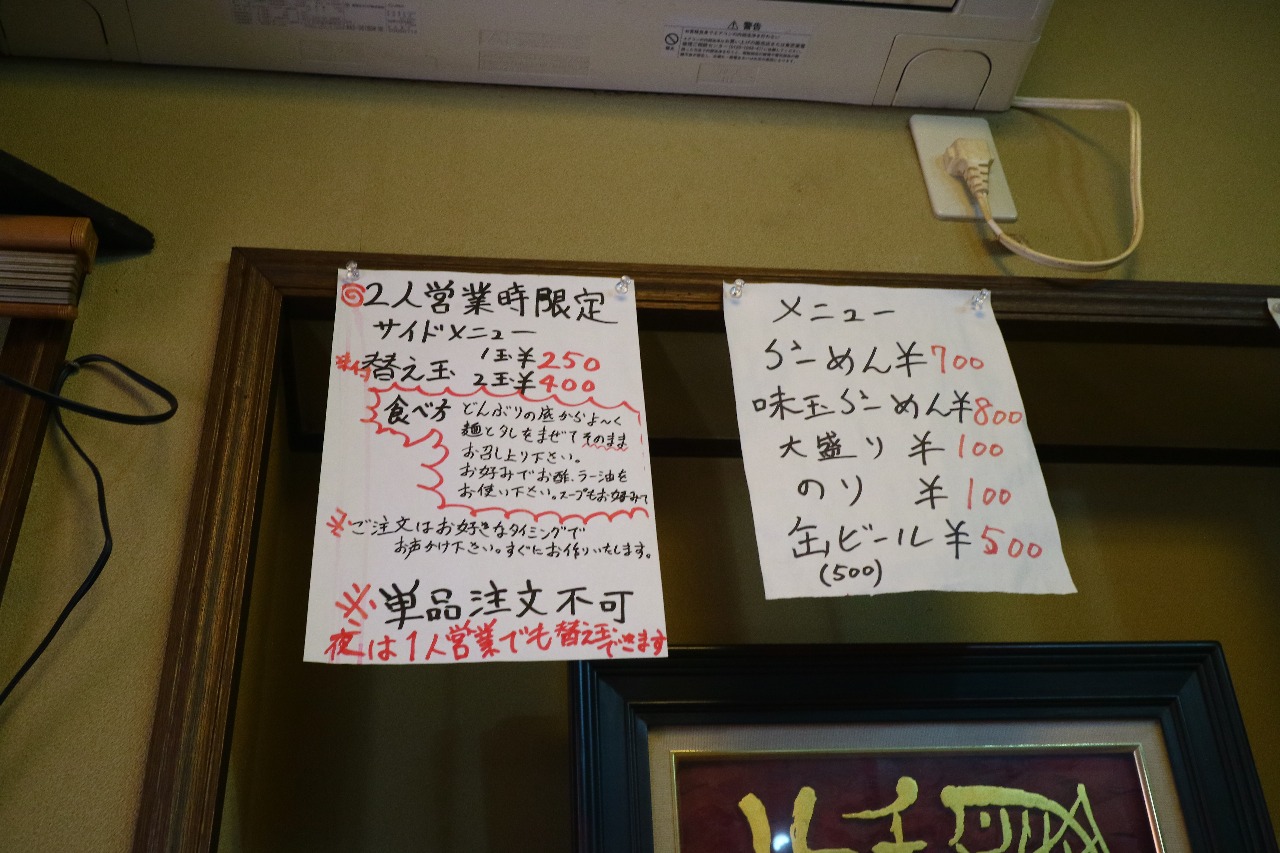 ⚠警告
◎2人営業時限定
サイドメニュー
味付替え玉 1玉¥250
2玉¥400
食べ方 どんぶりの底からよ〜く
麺とタレをまぜてそのまま
お召し上り下さい。
お好みでお酢、ラー油を
お使い下さい。スープもお好みで
※ご注文はお好きなタイミングで
お声かけ下さい。すぐにお作りいたします。
※単品注文不可
夜は1人営業でも替え玉できます
メニュー
らーめん¥700
味玉らーめん¥800
大盛り ¥100
のり ¥100
缶ビール¥500
(500)